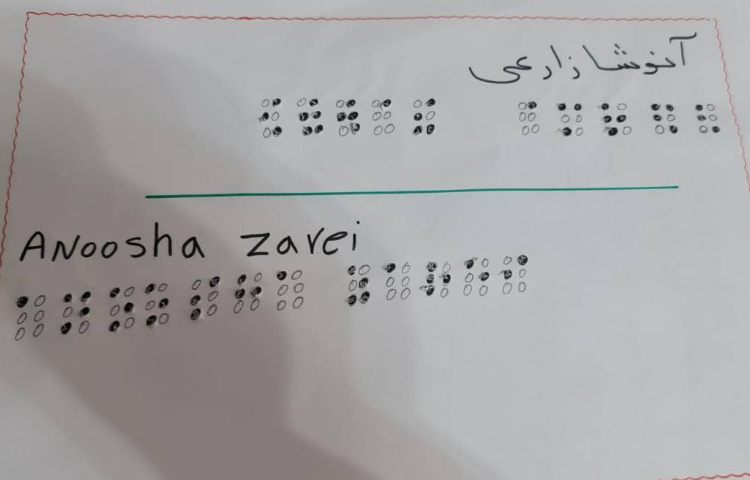 آنوشا زارعی
Anoosha Zarei